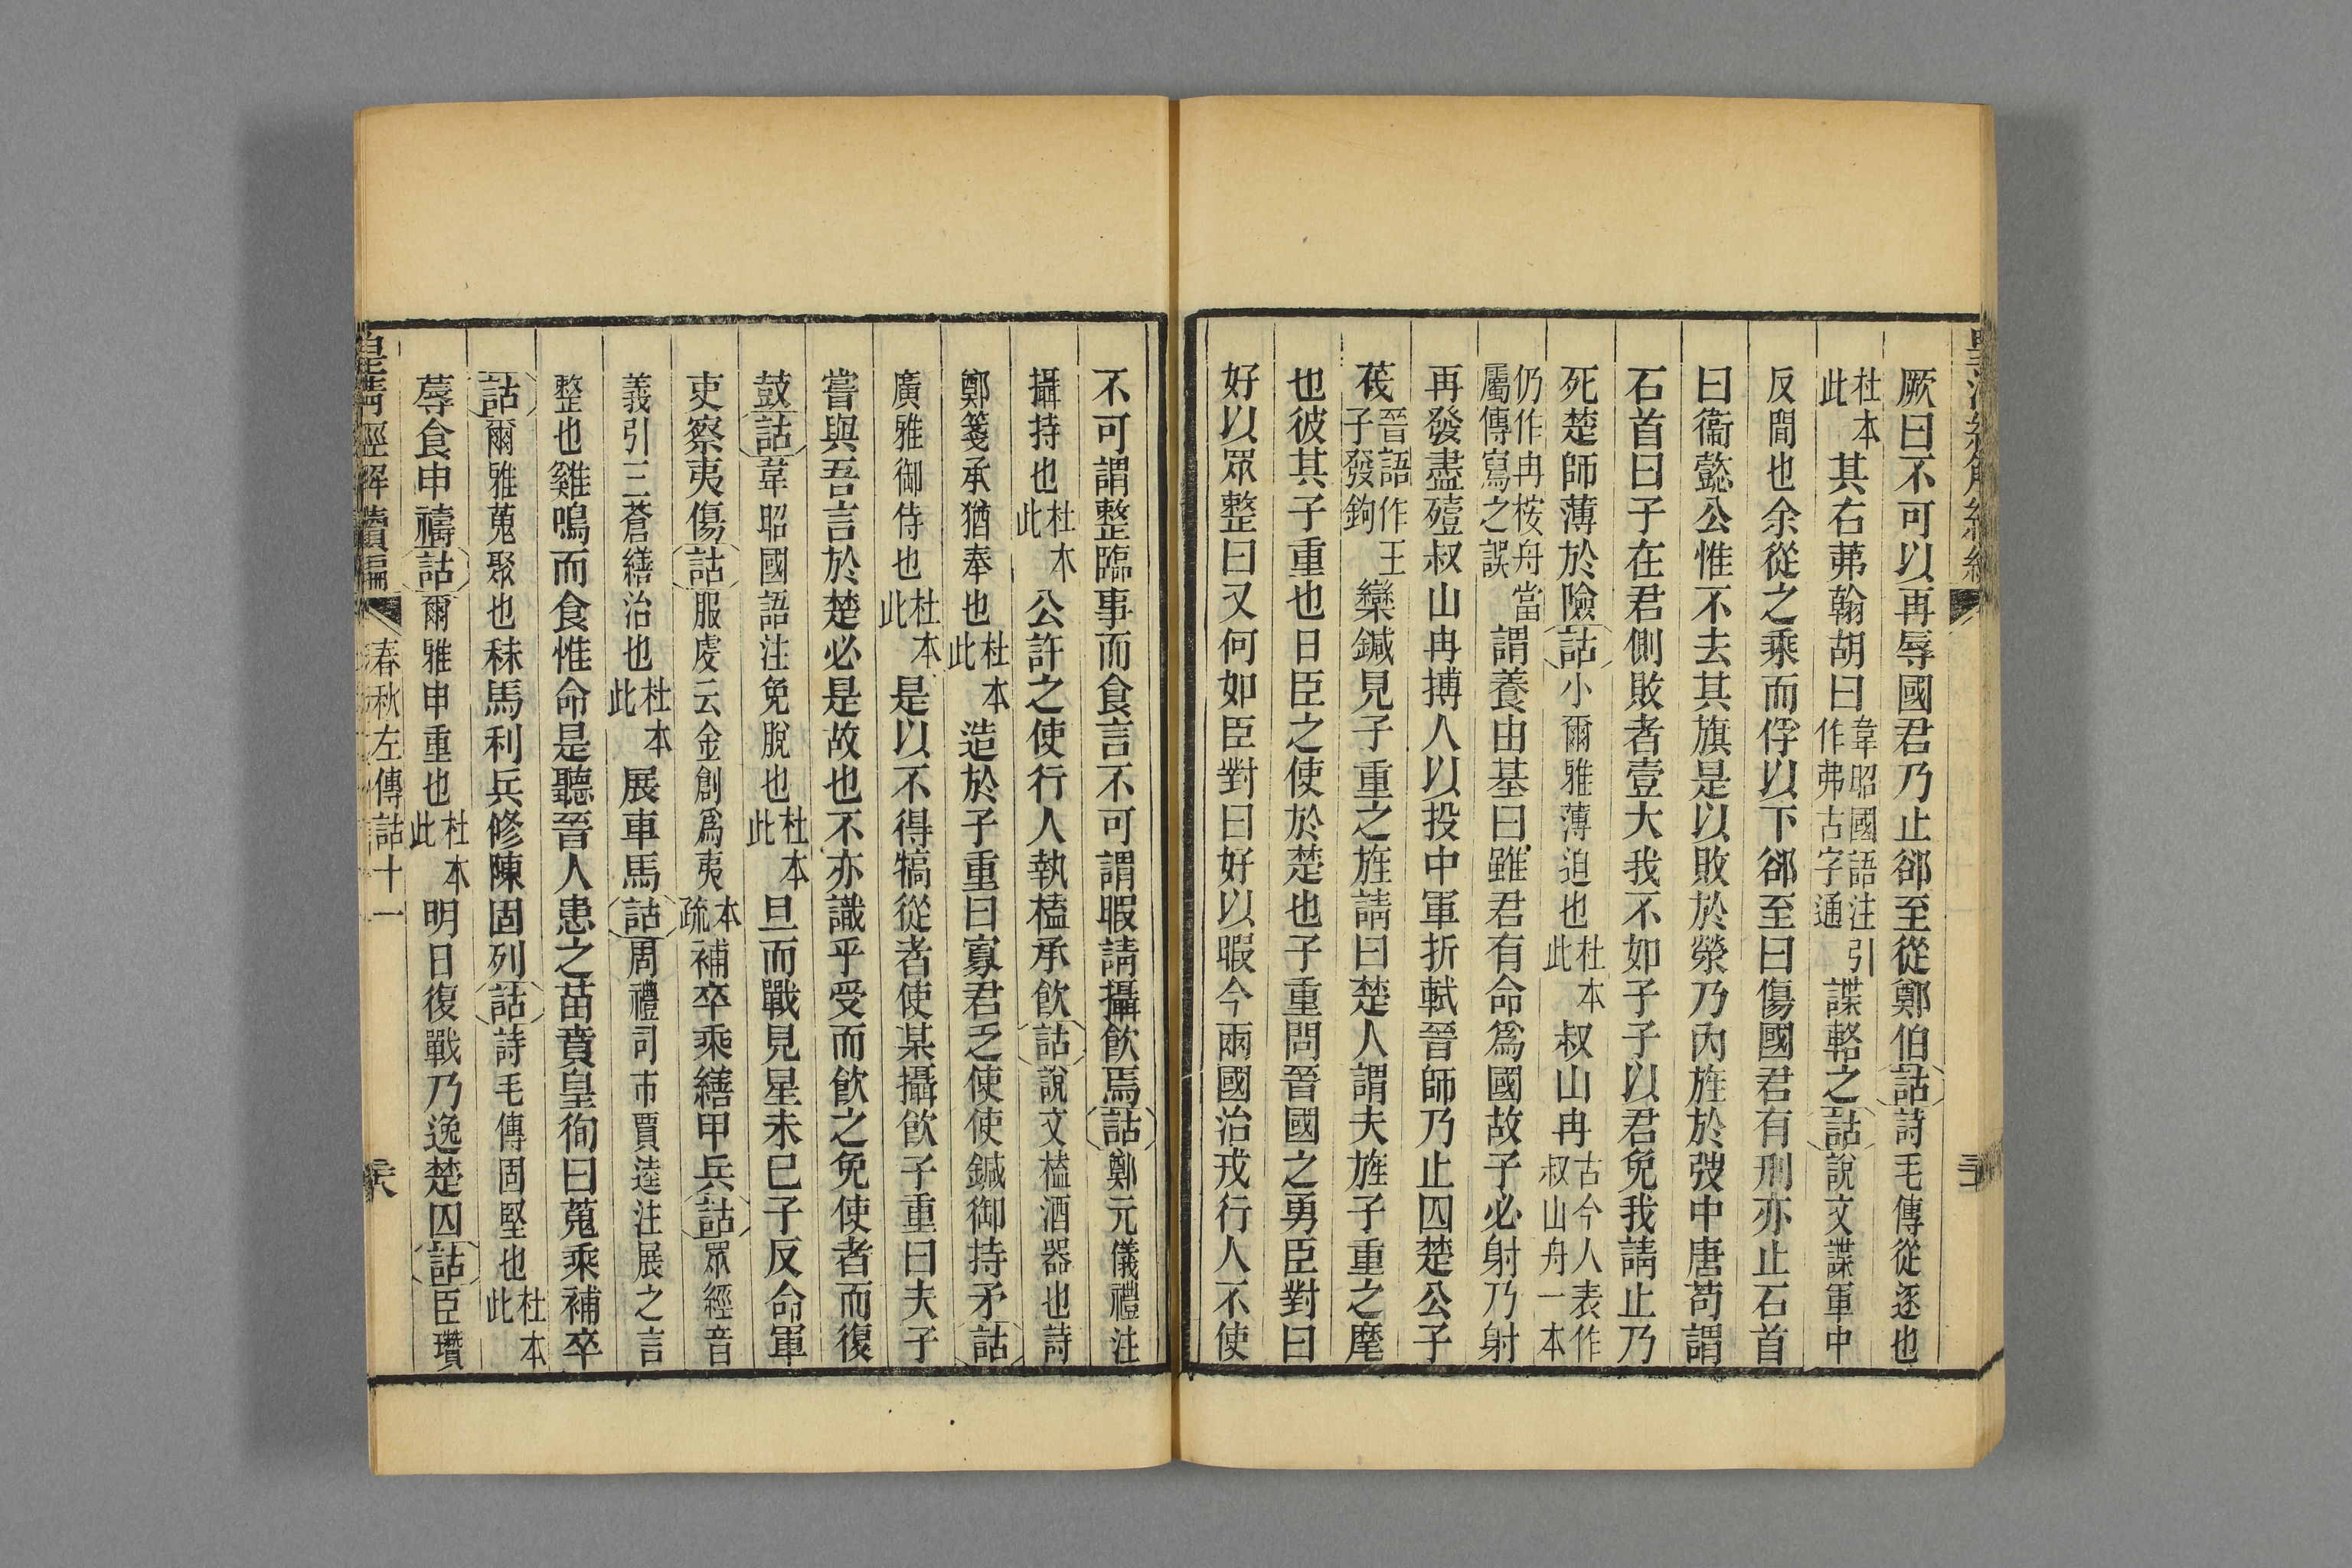 厥曰不可以再辱國君乃止郤至從鄭伯詁詩毛傳從逐也
杜本此其右茀翰胡曰韋昭國語注引作弗古字通諜輅之詁說文諜軍中
反閒也余從之乘而俘以下郤至曰傷國君有刑亦止石首
曰衞懿公惟不去其旗是以敗於滎乃內旌於弢中唐苟謂
石首曰子在君側敗者壹大我不如子子以君免我請止乃
死楚師薄於險詁小爾雅薄迫也杜本此叔山冉古今人表作叔山舟一本
仍作冉桉舟當屬傳寫之誤謂養由基曰雖君有命爲國故子必射乃射
再發盡殪叔山冉搏人以投中軍折軾晉師乃止囚楚公子
茷晉語作王子發鉤欒鍼見子重之旌請曰楚人謂夫旌子重之麾
也彼其子重也日臣之使於楚也子重問晉國之勇臣對曰
好以眾整曰又何如臣對曰好以暇今兩國治戎行人不使
不可謂整臨事而食言不可謂暇請攝飮焉詁鄭元儀禮注
攝持也杜本此公許之使行人執榼承飮詁說文榼酒器也詩
鄭箋承猶奉也杜本此造於子重曰寡君乏使使鍼御持矛詁
廣雅御侍也杜本此是以不得犒從者使某攝飮子重曰夫子
嘗與吾言於楚必是故也不亦識乎受而飮之免使者而復
鼓詁韋昭國語注免脫也杜本此旦而戰見星未已子反命軍
吏察夷傷詁服虔云金創爲夷本疏補卒乘繕甲兵詁眾經音
義引三蒼繕治也杜本此展車馬詁周禮司巿賈逵注展之言
整也雞鳴而食惟命是聽晉人患之苗賁皇徇曰蒐乘補卒
詁爾雅蒐聚也秣馬利兵修陳固列詁詩毛傳固堅也杜本此
蓐食申禱詁爾雅申重也杜本此明日復戰乃逸楚囚詁臣瓚
皇清經解續編 春秋左傳詁十一